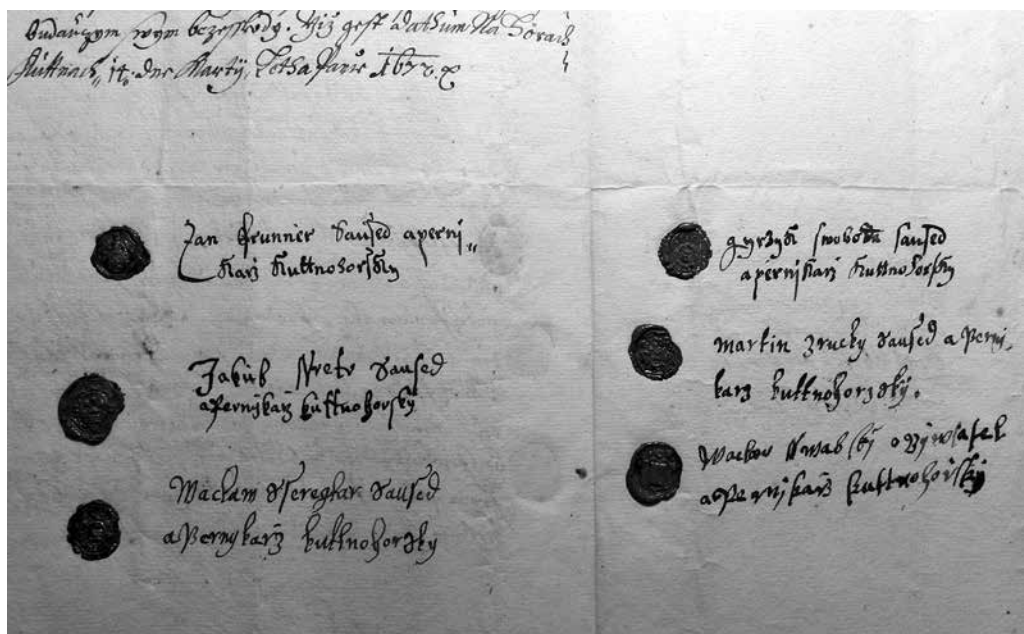 budaucym swym bezesskody. Již gest dathum Na Horach
Kuttnach, 14. dne Martij, Letha Panie 1672.
Jan Brunner Saused a perni„
karž Kuttnohorsky
Jakub Saused
a Pernykarž kuttnohorsky
Waclaw Saused
a Pernykarž kuttnohorzsky
Gyržyk swoboda saused
a pernikarž Kuttnohorsky
martin zrucky Saused a Perni,
karz kuttnohorzský.
Waclaw obijwatel
a Pernikarž kuttnohorský